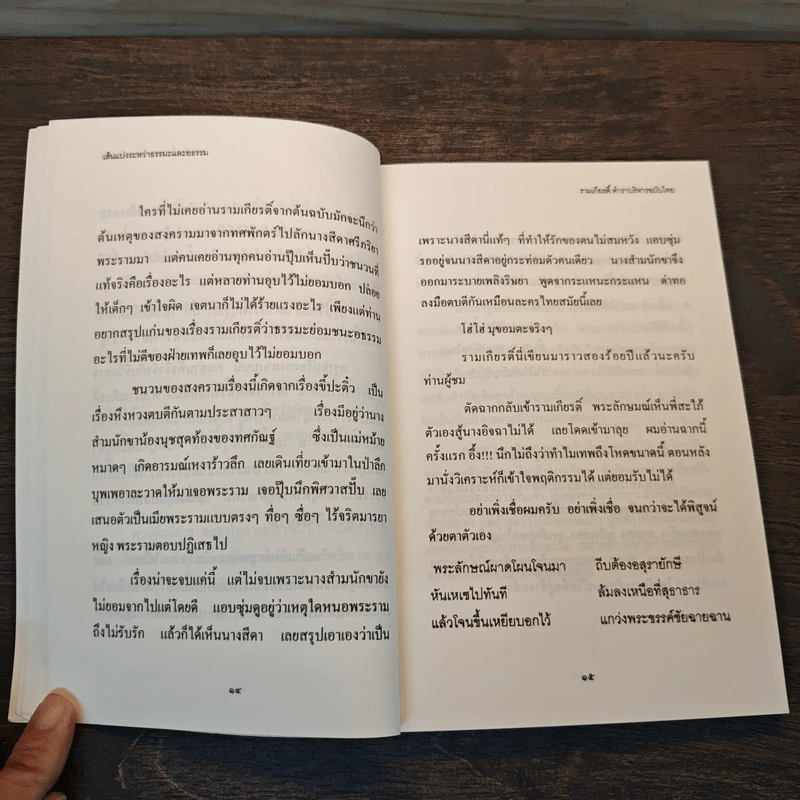 เส้นแบ่งระหว่าธรรมะและอธรรม
ใครที่ไม่เคยอ่านรามเกียรติ์จากต้นฉบับมักจะนึกว่า
ต้นเหตุของสงครามมาจากทศพักตร์ไปลักนางสีดาศรีภริยา
พระรามมา แต่คนเคยอ่านทุกคนอ่านปุ๊บเห็นปั๊บว่าชนวนที่
แท้จริงคือเรื่องอะไร แต่หลายท่านอุบไว้ไม่ยอมบอก ปล่อย
ให้เด็กๆ เข้าใจผิด เจตนาก็ไม่ได้ร้ายแรงอะไร เพียงแต่ท่าน
อยากสรุปแก่นของเรื่องรามเกียรติ์ว่าธรรมะย่อมชนะอธรรม
อะไรที่ไม่ดีของฝ่ายเทพก็เลยอุบไว้ไม่ยอมบอก
ชนวนของสงครามเรื่องนี้เกิดจากเรื่องขี้ปะติ๋ว เป็น
เรื่องหึงหวงตบตีกันตามประสาสาวๆ เรื่องมีอยู่ว่านาง
สำมนักขาน้องนุชสุดท้องของทศกัณฐ์ ซึ่งเป็นแม่หม้าย
หมาดๆ เกิดอารมณ์เหงาร้าวลึก เลยเดินเที่ยวเข้ามาในป่าลึก
บุพเพอาละวาดให้มาเจอพระราม เจอปุ๊บนึกพิศวาสปั๊บ เลย
เสนอตัวเป็นเมียพระรามแบบตรงๆ ทื่อๆ ซื่อๆ ไร้จริตมารยา
หญิง พระรามตอบปฏิเสธไป
เรื่องน่าจะจบแค่นี้ แต่ไม่จบเพราะนางสำมนักขายัง
ไม่ยอมจากไปแต่โดยดี แอบซุ่มดูอยู่ว่าเหตุใดหนอพระราม
ถึงไม่รับรัก แล้วก็ได้เห็นนางสีดา เลยสรุปเอาเองว่าเป็น
๑๔
รามเกียรติ์ ตำราบริหารฉบับไทย
เพราะนางสีดานี่แท้ๆ ที่ทำให้รักของตนไม่สมหวัง แอบซุ่ม
รออยู่จนนางสีดาอยู่กระท่อมตัวคนเดียว นางสำมนักขาจึง
ออกมาระบายเพลิงริษยา พูดจากระแหนะกระแหน ด่าทอ
ลงมือตบตีกันเหมือนละครไทยสมัยนี้เลย
โฮ่โฮ่ มุขอมตะจริงๆ
รามเกียรติ์นี่เขียนมาราวสองร้อยปีแล้วนะครับ
ท่านผู้ชม
ตัดฉากกลับเข้ารามเกียรติ์ พระลักษมณ์เห็นพี่สะใภ้
ตัวเองสู้นางอิจฉาไม่ได้ เลยโดดเข้ามาลุย ผมอ่านฉากนี้
ครั้งแรก อึ้ง!!! นึกไม่ถึงว่าทำไมเทพถึงโหดขนาดนี้ ตอนหลัง
มานั่งวิเคราะห์ก็เข้าใจพฤติกรรมได้ แต่ยอมรับไม่ได้
อย่าเพิ่งเชื่อผมครับ อย่าเพิ่งเชื่อ จนกว่าจะได้พิสูจน์
ด้วยตาตัวเอง
พระลักษณ์ผาดโผนโจนมา ถีบต้องอสุรายักษี
หันเหเซไปทันที ล้มลงเหนือที่สุธาธาร
แล้วโจนขึ้นเหยียบอกไว้ แกว่งพระขรรค์ชัยฉายฉาน
๑๕